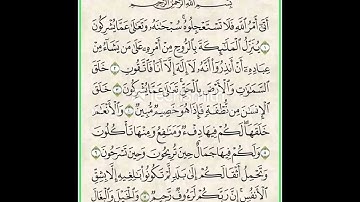 بِسْمِ ٱللَّهِ ٱلرَّحْمَٰنِ ٱلرَّحِيمِ
أَتَىٰٓ أَمْرُ ٱللَّهِ فَلَا تَسْتَعْجِلُوهُ سُبْحَٰنَهُۥ وَتَعَٰلَىٰ عَمَّا يُشْرِكُونَ
١ يُنَزِّلُ ٱلْمَلَٰٓئِكَةَ بِٱلرُّوحِ مِنْ أَمْرِهِۦ عَلَىٰ مَن يَشَآءُ مِنْ
عِبَادِهِۦٓ أَنْ أَنذِرُوٓا۟ أَنَّهُۥ لَآ إِلَٰهَ إِلَّآ أَنَا۠ فَٱتَّقُونِ ٢ خَلَقَ
ٱلسَّمَٰوَٰتِ وَٱلْأَرْضَ بِٱلْحَقِّ تَعَٰلَىٰ عَمَّا يُشْرِكُونَ ٣ خَلَقَ
ٱلْإِنسَٰنَ مِن نُّطْفَةٍ فَإِذَا هُوَ خَصِيمٌ مُّبِينٌ ٤ وَٱلْأَنْعَٰمَ
خَلَقَهَا لَكُمْ فِيهَا دِفْءٌ وَمَنَٰفِعُ وَمِنْهَا تَأْكُلُونَ
٥ وَلَكُمْ فِيهَا جَمَالٌ حِينَ تُرِيحُونَ وَحِينَ تَسْرَحُونَ ٦
وَتَحْمِلُ أَثْقَالَكُمْ إِلَىٰ بَلَدٍ لَّمْ تَكُونُوا۟ بَٰلِغِيهِ إِلَّا بِشِقِّ
ٱلْأَنفُسِ إِنَّ رَبَّكُمْ لَرَءُوفٌ رَّحِيمٌ ٧ وَٱلْخَيْلَ وَٱلْبِغَالَ